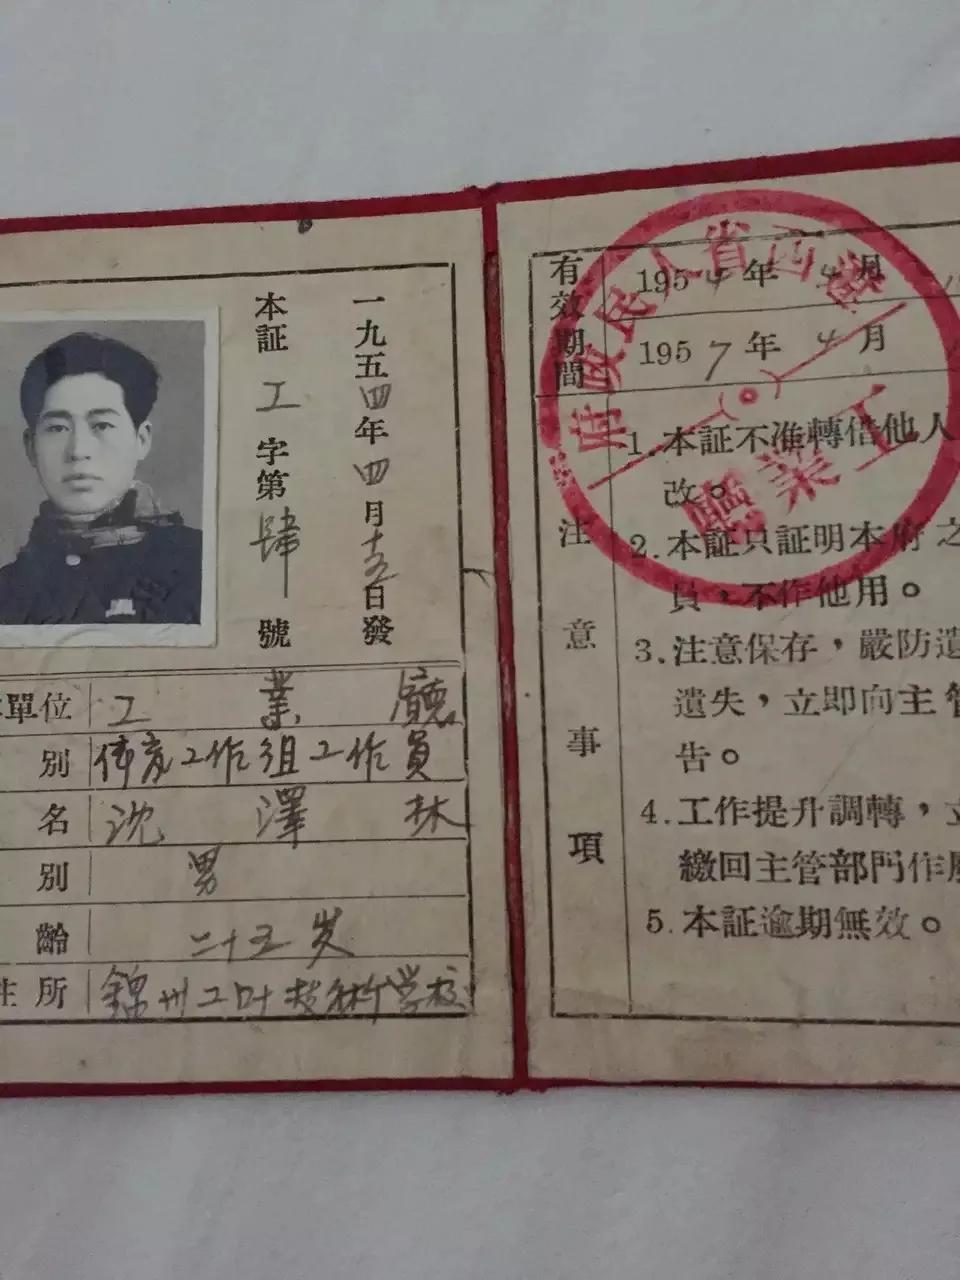 一九五四年四月十五日發
本証工字第肆號
單位 工業廳
別 体育工作組工作員
名 沈澤林
別 男
齡 二十五岁
住所 錦州工叶技術学校
遼西省人民政府
工業廳
有效期間
1954年4月
1957年4月
注意事項
1.本証不准轉借他人
改。
2.本証只証明本府之
員，不作他用。
3.注意保存，嚴防遺
遺失，立即向主管
告。
4.工作提升調轉，
繳回主管部門作
5.本証逾期無效。